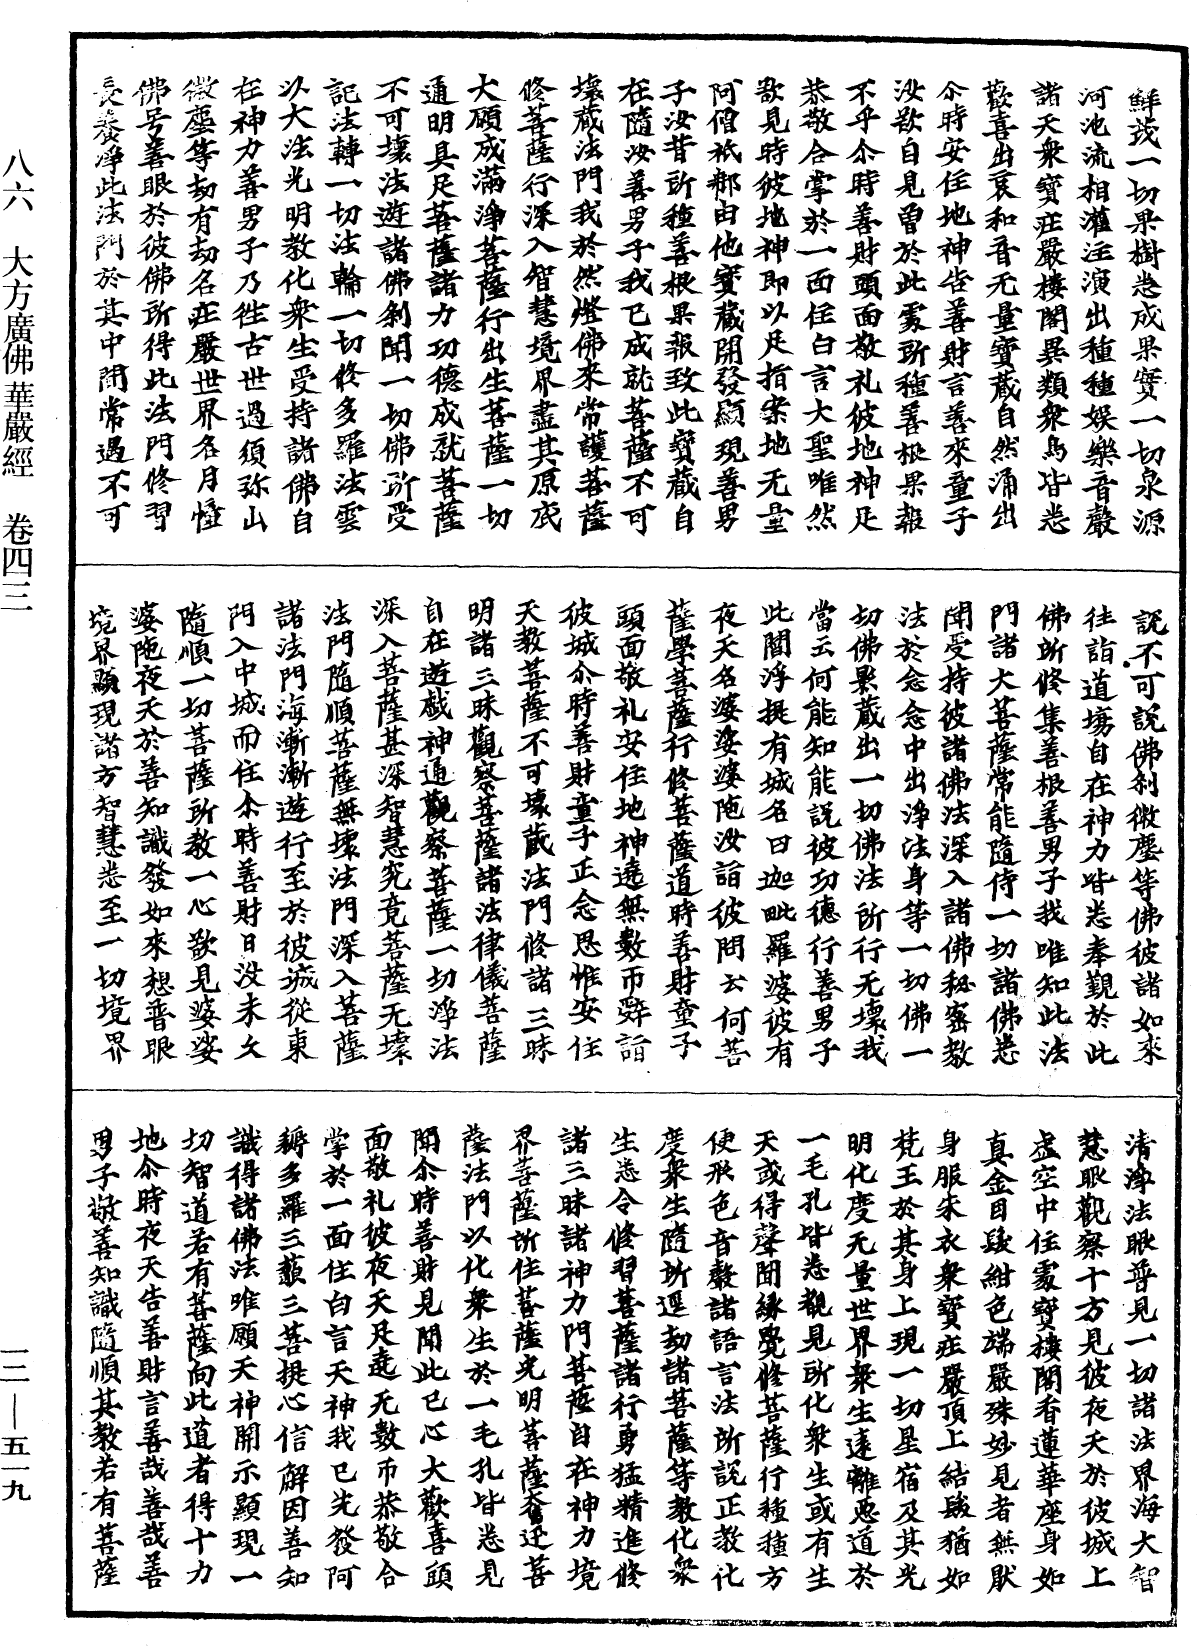 鮮茂一切果樹悉成果實一切泉源
河池流相灌注演出種種娛樂音聲
諸天衆寶莊嚴樓閣異類衆鳥皆悉
歡喜出哀和音无量寶藏自然涌出
尒時安住地神告善財言善來童子
汝欲自見曾於此處所種善根果報
不乎尒時善財頭面敬礼彼地神足
恭敬合掌於一面住白言大聖唯然
欲見時彼地神即以足指案地无量
阿僧祇那由他寶藏開發顯現善男
子汝昔所種善根果報致此寶藏自
在隨汝善男子我已成就菩薩不可
壞藏法門我於然燈佛來常護菩薩
修菩薩行深入智慧境界盡其原底
大願成滿淨菩薩行出生菩薩一切
通明具足菩薩諸力功德成就菩薩
不可壞法遊諸佛剎聞一切佛所受
記法轉一切法輪一切修多羅法雲
以大法光明教化衆生受持諸佛自
在神力善男子乃徃古世過須弥山
微塵等劫有劫名莊嚴世界名月幢
佛号善眼於彼佛所得此法門修習
長養淨此法門於其中間常遇不可
說不可說佛剎微塵等佛彼諸如來
往詣道場自在神力皆悉奉覲於此
佛所修集善根善男子我唯知此法
門諸大菩薩常能隨侍一切諸佛悉
聞受持彼諸佛法深入諸佛秘密教
法於念念中出淨法身等一切佛一
切佛果藏出一切佛法所行无壞我
當云何能知能說彼功德行善男子
此閻浮提有城名曰迦毗羅婆彼有
夜天名婆娑婆陁汝詣彼問云何菩
薩學菩薩行修菩薩道時善財童子
頭面敬礼安住地神遶無數帀辞詣
彼城尒時善財童子正念思惟安住
天教菩薩不可壞藏法門修諸三昧
明諸三昧觀察菩薩諸法律儀菩薩
自在遊戲神通觀察菩薩一切淨法
深入菩薩甚深智慧究竟菩薩无壞
法門隨順菩薩無壞法門深入菩薩
諸法門海漸漸遊行至於彼城從東
門入中城而住尒時善財日没未久
隨順一切菩薩所教一心欲見婆娑
婆陁夜天於善知識發如來想普眼
境界顯現諸方智慧悉至一切境界
清淨法眼普見一切諸法界海大智
慧眼觀察十方見彼夜天於彼城上
虛空中住處寶樓閣香蓮華座身如
真金目髮紺色端嚴殊妙見者無猒
身服朱衣衆寶莊嚴頂上結髮猶如
梵王於其身上現一切星宿及其光
明化度无量世界衆生遠離惡道於
一毛孔皆悉覩見所化衆生或有生
天或得聲聞緣覺修菩薩行種種方
便形色音聲諸語言法所說正教化
度衆生隨所逕劫諸菩薩等教化衆
生悉令修習菩薩諸行勇猛精進修
諸三昧諸神力門菩薩自在神力境
界菩薩所住菩薩光明菩薩奮迅菩
薩法門以化衆生於一毛孔皆悉見
聞尒時善財見聞此已心大歡喜頭
面敬礼彼夜天足遶无數帀恭敬合
掌於一面住白言天神我已先發阿
耨多羅三藐三菩提心信解因善知
識得諸佛法唯願天神開示顯現一
切智道若有菩薩向此道者得十力
地尒時夜天告善財言善哉善哉善
男子敬善知識隨順其教若有菩薩
八六　大方廣佛華嚴經　卷四三
一二—五一九